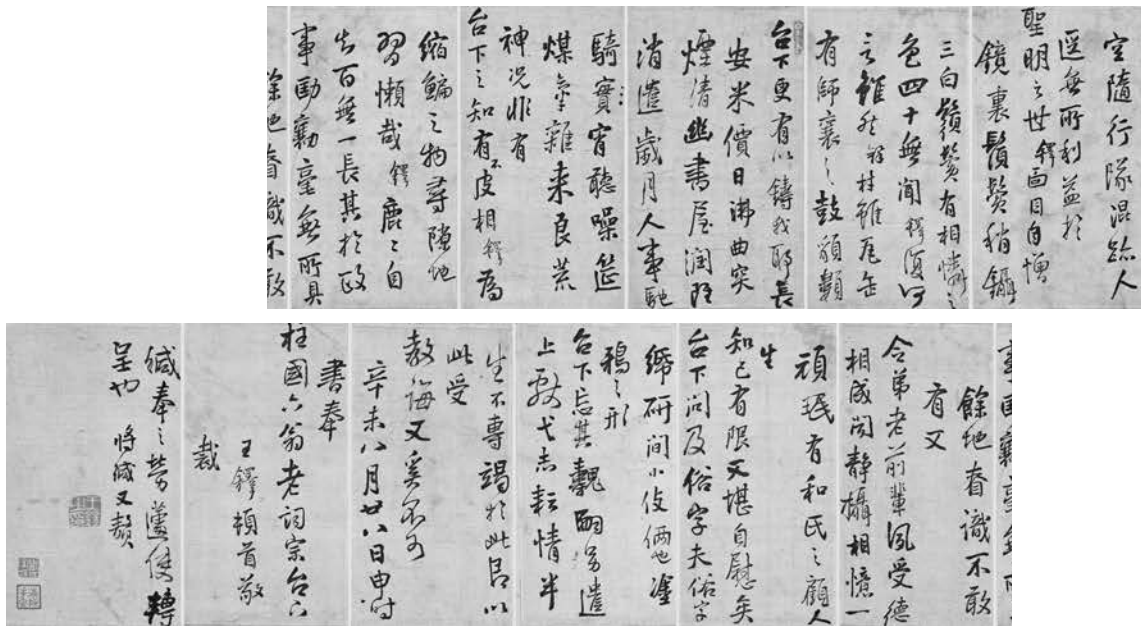 空隨行隊混跡人
逕無所利益於
聖明之世鐸面目自憎
鏡裏鬚鬢稍鑷
三白鬚鬢有相憐之
色四十無聞鐸復何
言雖然雖瓦缶
有師襄之鼓顓顓
台下更有以鑄我耶長
安米價日沸曲突
煙清幽書屋潤
消遣歲月人事馳
騎實聽噪筵
煤氣雜来良荒
神況非有
台下之知有不皮相鐸為
縮鯿之物尋隙地
習懶哉鐸鹿鹿自
告百無一長其於政
事勖勷毫無所具
餘地眷識不敢
餘地眷識不敢
有又
令弟老前輩夙受德
相成閔靜攝相憶一
頑珉有和氏之顧人
生
知己有限又堪自慰矣
台下問及俗字夫俗字
締研间小伎倆也塗
鴉之形
台下忘其醜遺
上弋志耘情半
生不專竭於此昌以
此受
教誨又奚不可
辛未八月廿八日申时
書奉
柱國六翁老詞宗台下
王鐸頓首敬
裁
緘奉之勞蘧使轉
呈也 将緘又贅